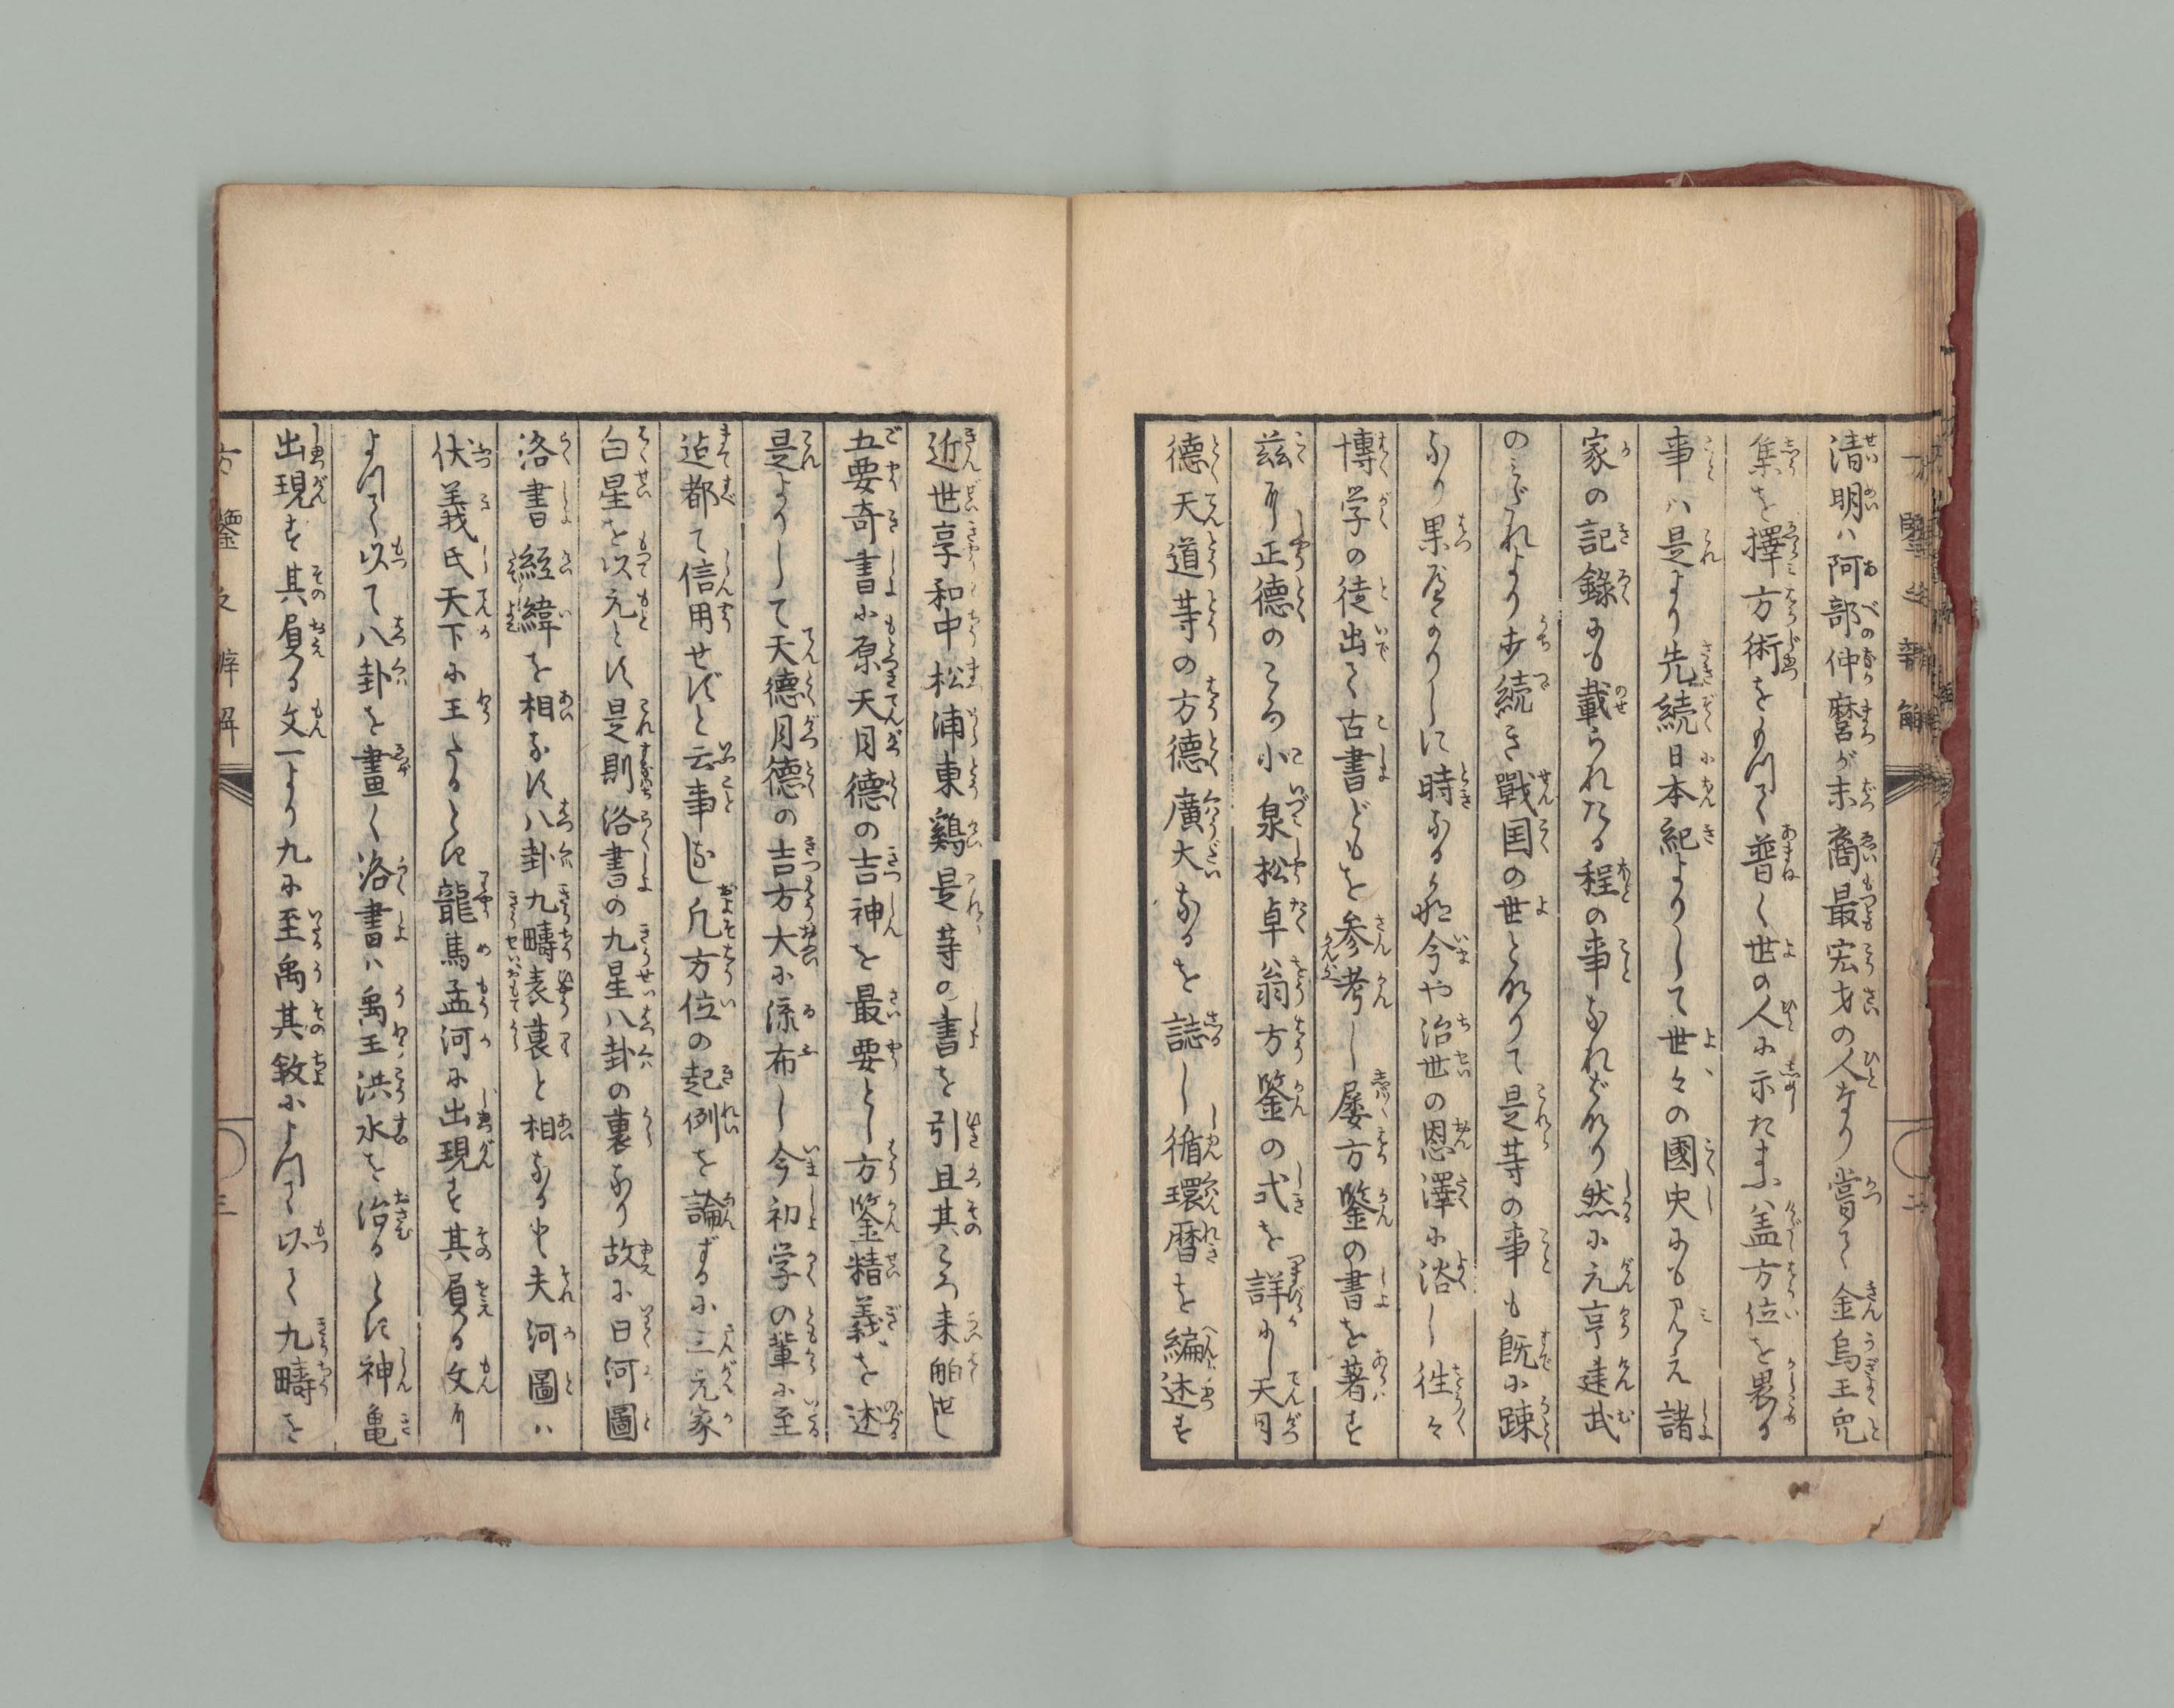 清明ハ阿部仲麿が末裔最宏才の人なり嘗て金烏玉兎
集を擇方術をもつて普く世の人に示たまふハ盖方位を畏る
事ハ是より先続日本紀よりして世々の國史にも見え諸
家の記錄にも載られたる程の事なれバなり然に元亨建武
のみだれより歩続き戰国の世となりて是等の事も既に踈
なり果度かりしに時なる哉今や治世の恩澤に浴し徃々
博学の徒出て古書どもを参考し屡方鑒の書を著す
茲に正德のころ小泉松卓翁方鑒の式を詳にし天月
德天道等の方德廣大なるを誌し循環暦を編述す
近世享和中松浦東鷄是等の書を引且其ころ来舶せし
五要奇書に原天月德の吉神を最要とし方鑒精義を述
是よりして天德月德の吉方大に流布し今初学の輩に至
迠都て信用せずと云事なし凡方位の起例を論ずるに三元家
白星を以元とす是則洛書の九星八卦の裏なり故に曰河圖
洛書経緯を相なす八卦九疇表裏と相なる也夫河圖ハ
伏義氏天下に王たるとき龍馬孟河に出現す其負る文に
よつて以て八卦を畫く洛書ハ禹王洪水を治るとき神亀
出現す其負る文一より九に至禹其敘によつて以て九疇を
方鑒之辨解
三